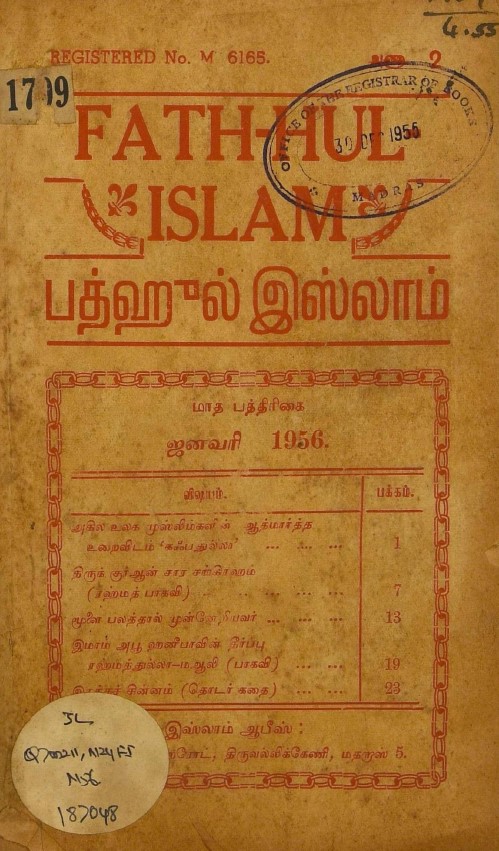 4.55
REGISTERED No. M 6165.
2
1709
OFFICE OF THE REGISTRAR OF BOOKS
30 DEC 1955
MADRAS
FATH-HUL
ISLAM
பத்ஹுல் இஸ்லாம்
மாத பத்திரிகை
ஜனவரி 1956.
விஷயம். பக்கம்.
அகில உலக முஸ்லிம்களின் ஆத்மார்த்த
உறைவிடம் 'கஃபதுல்லா' ... ... ... 1
திருக் குர்ஆன் சார சங்கிரஹம்
(ரஹ்மத் பாகவி) .. ... ... ... ... 7
மூளை பலத்தால் முன்னேறியவர் ... ... 13
இமாம் அபூ ஹனீபாவின் தீர்ப்பு
ரஹ்மத்துல்லா-ம.ஆலி (பாகவி) ... ... 19
சின்னம் (தொடர் கதை) ... ... 23
இஸ்லாம் ஆபீஸ் :
திருவல்லிக்கேணி, மதராஸ் 5.
N56
187048